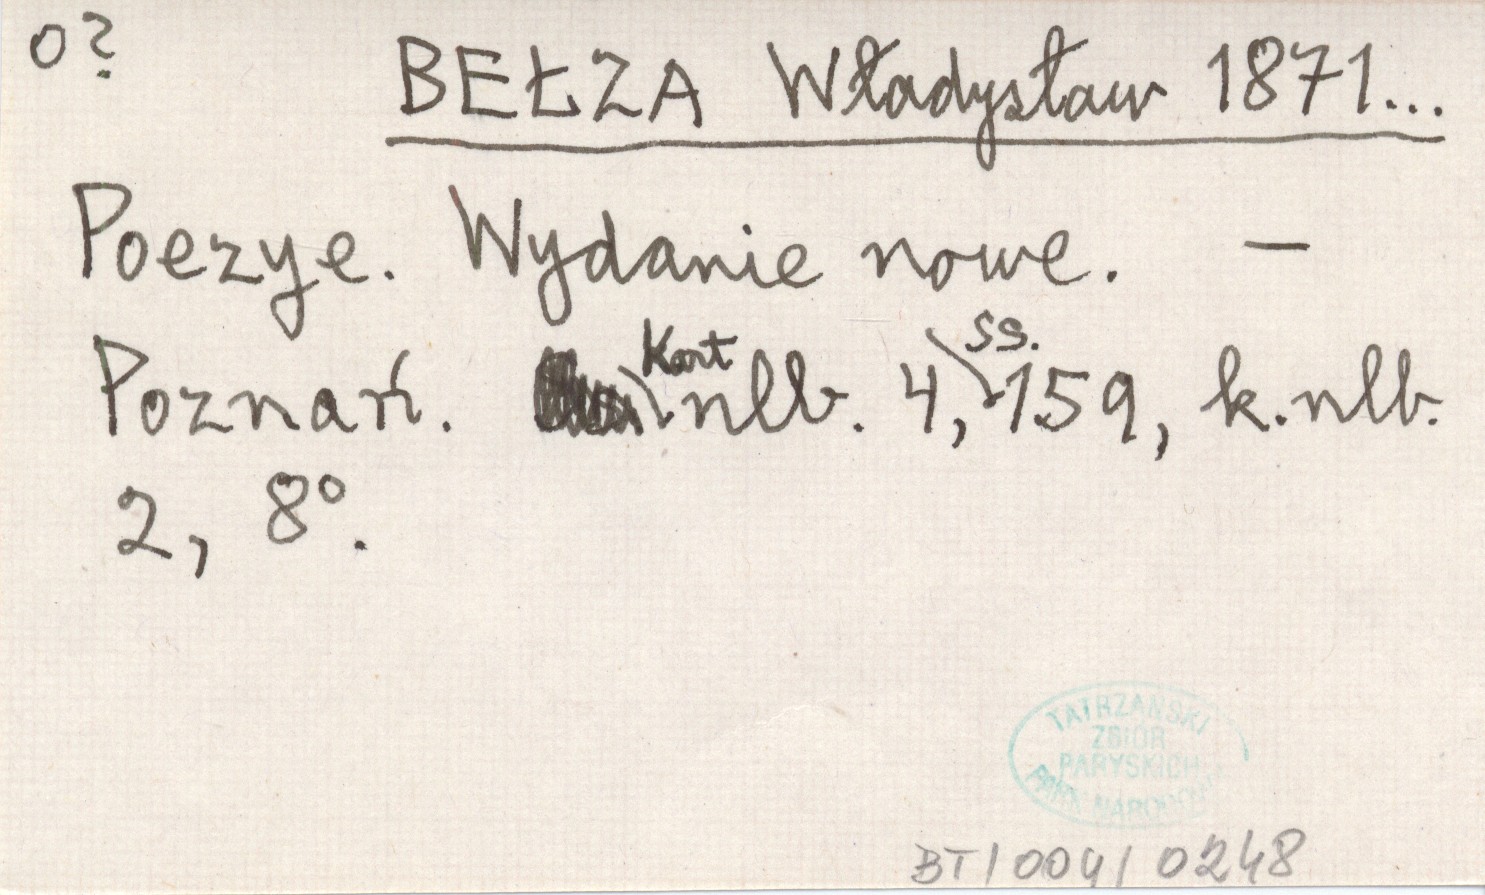 o?
BEŁZA Władysław 1871...
Poezye. Wydanie nowe. —
Poznań. Kart nlb. 4, ss. 159, k. nlb.
2, 8°.
TATRZAŃSKI
ZBIÓR
PARYSKICH
PARK NARODOWY
BT/004/0248